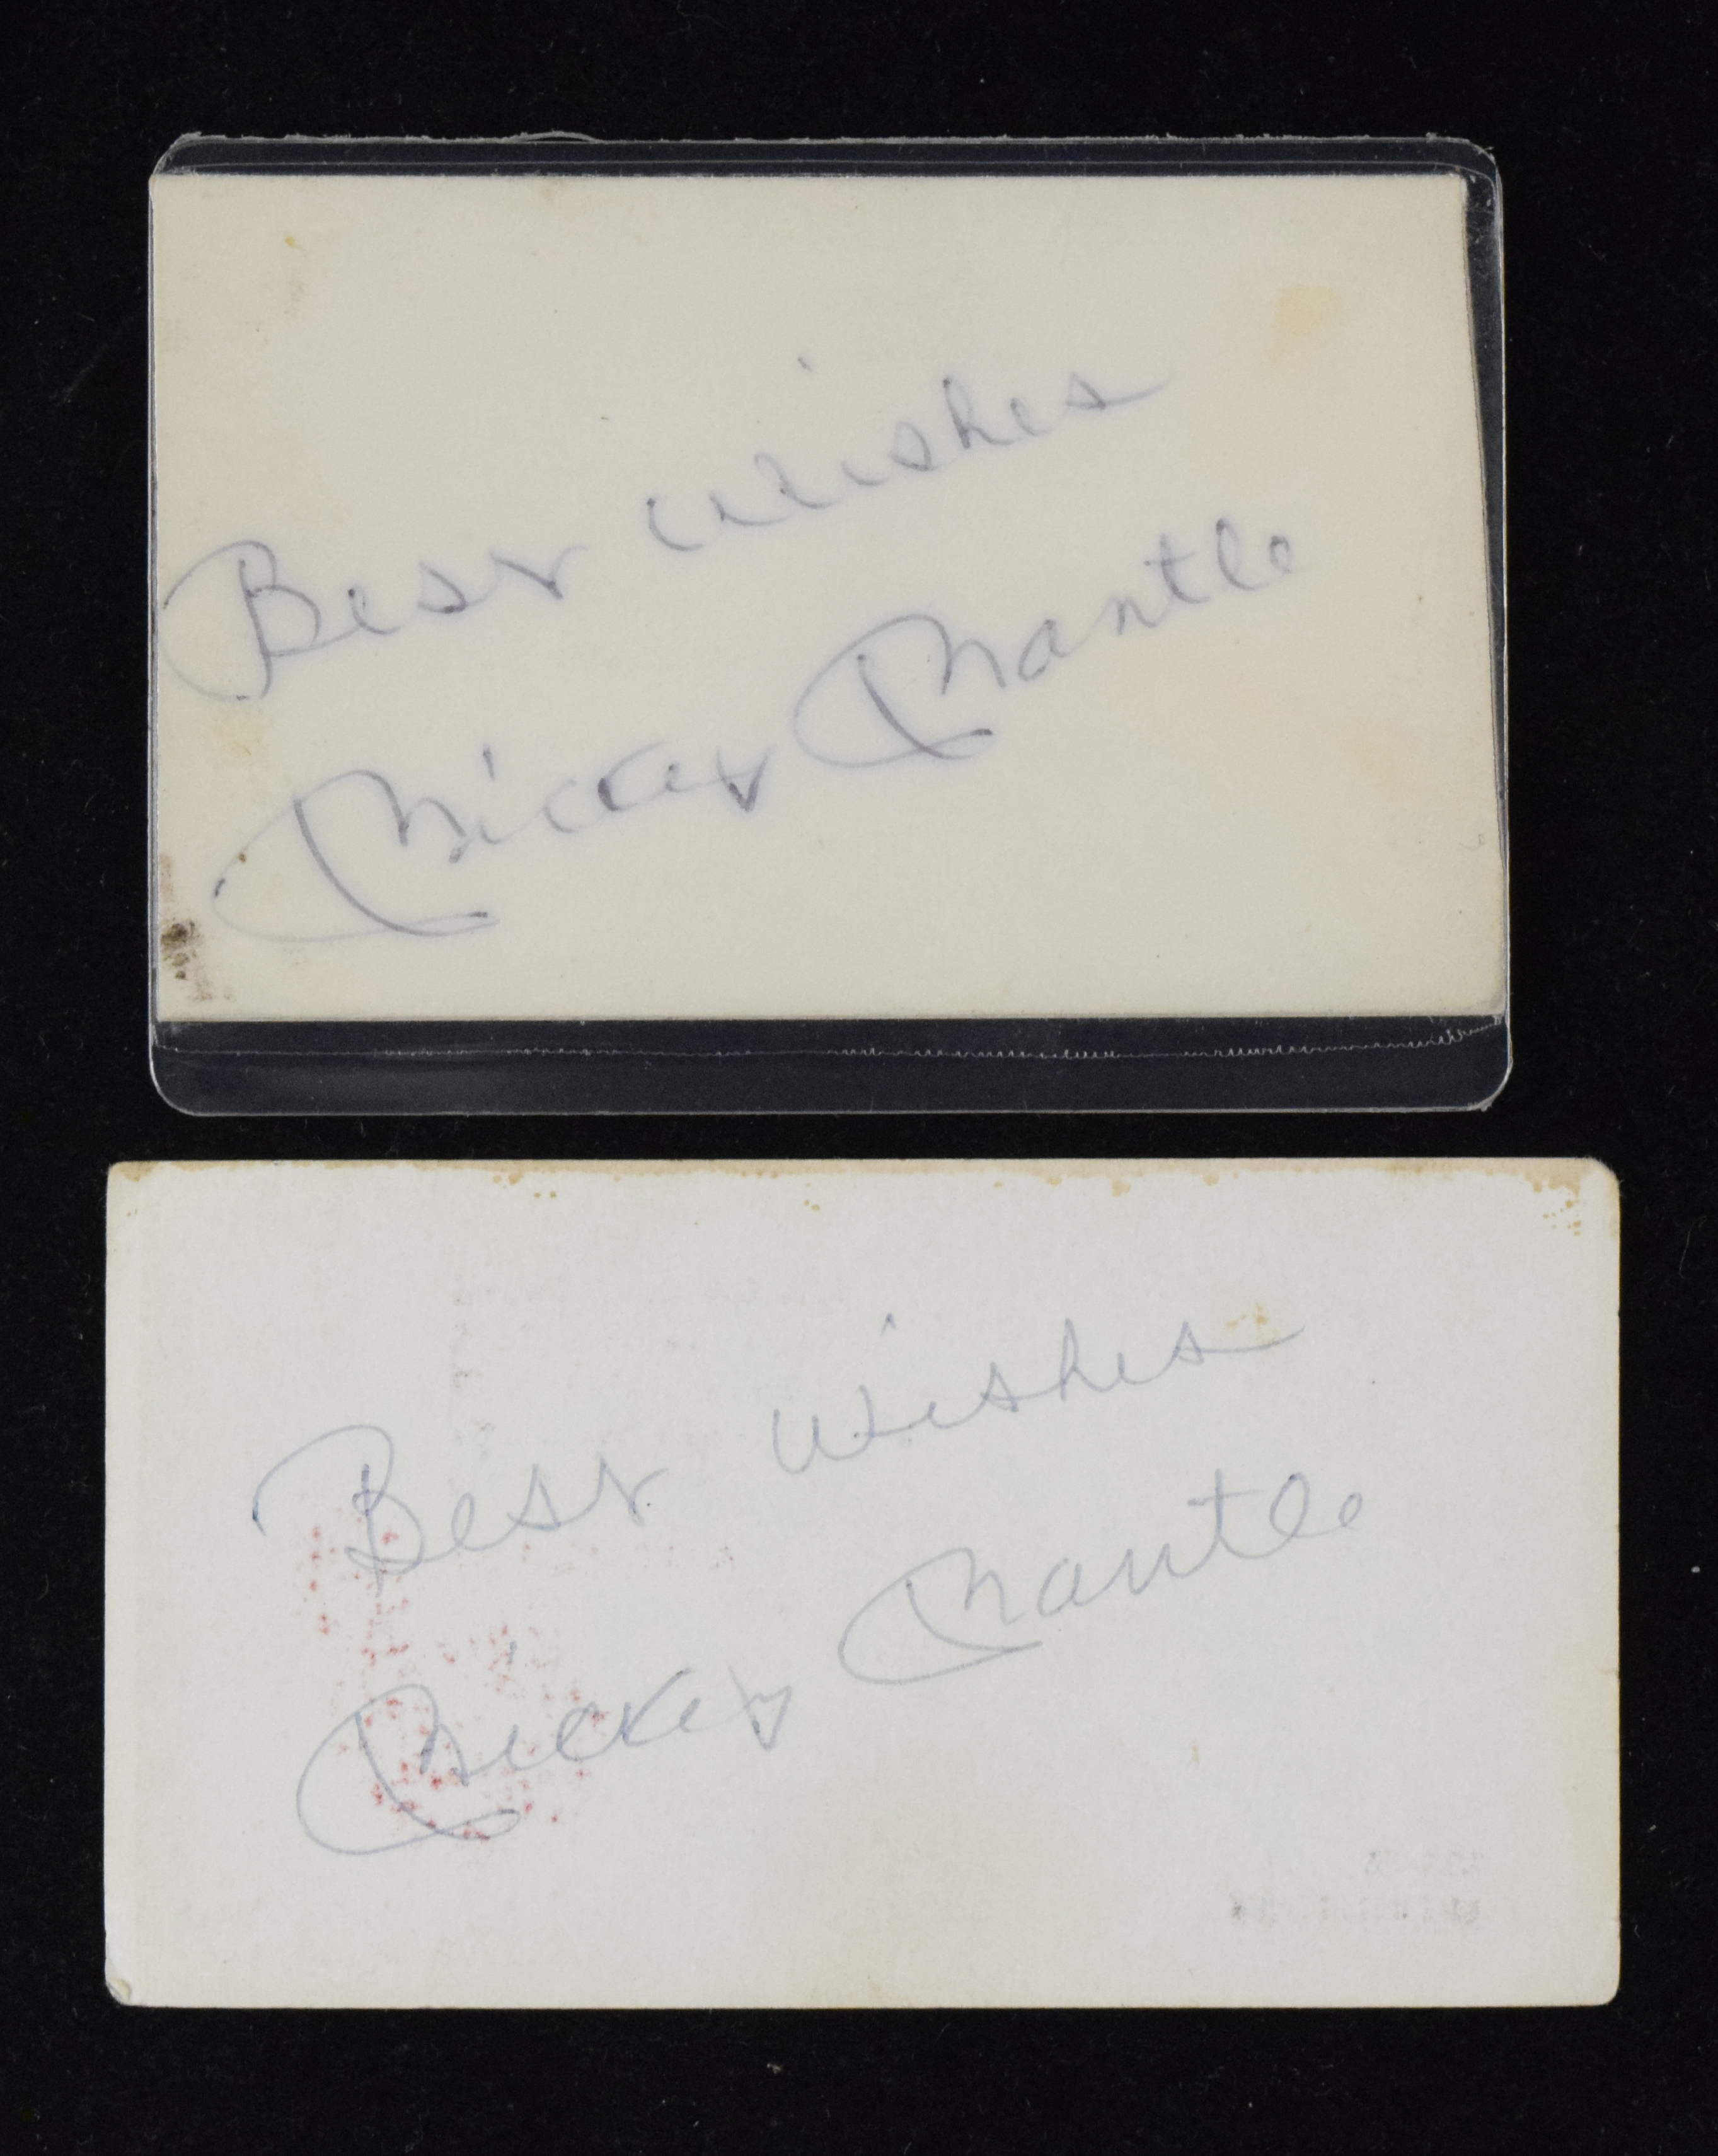 Best wishes
Mickey Mantle
Best wishes
Mickey Mantle